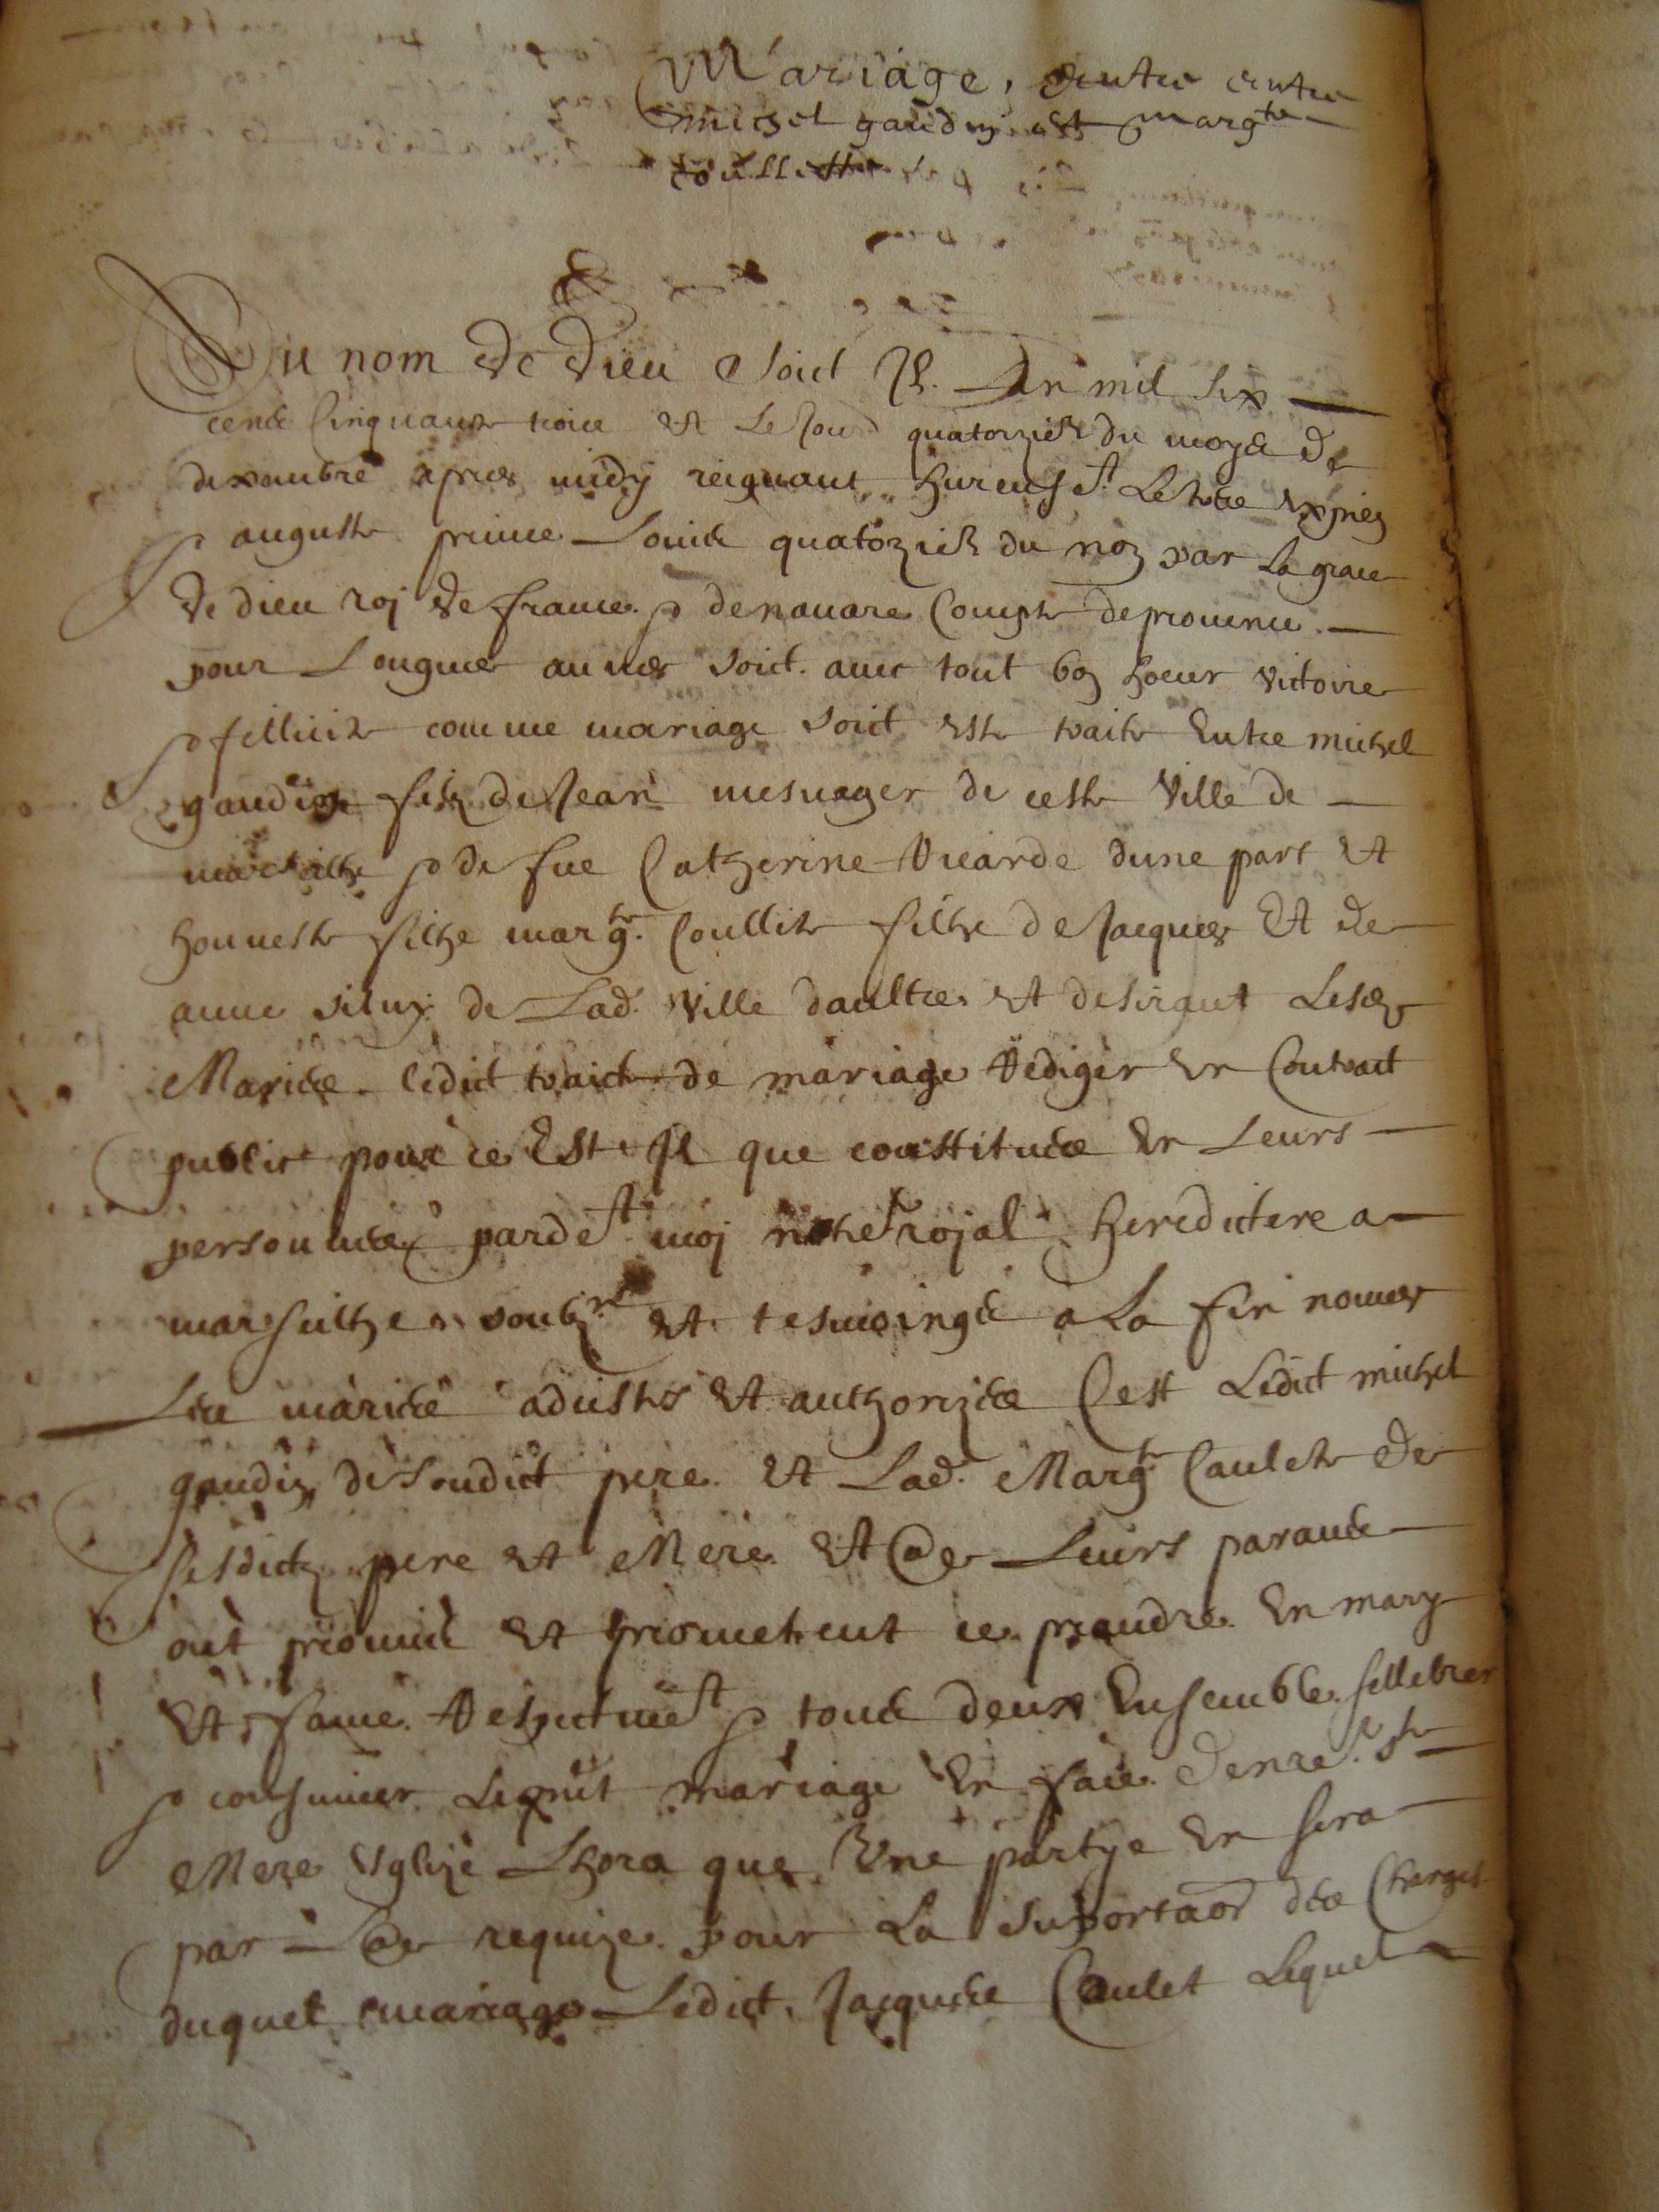 Mariage, entre entre
michel gaudin et marg.te
coullette
Du nom de dieu soict Il. Lan mil six
cens cinquante trois et le jour quatorzies du moys de
dexambre apres midy reignant hureus.t le tres expries
& auguste prince Louis quatorzies du nom par la grace
de dieu roj de france & de nauare Compte de prouence
pour longues annes soict auec tout bon hoeur victoire
& fellicite comme mariage soict este traite entre michel
gaudin filz de Jean mesnager de ceste ville de
marseilhe & de fue Catherine vicarde dune part et
honneste filhe marg.te Coullete filhe de Jacques et de
anne siluy de lad. ville daultre et desirant lesd
Maries ledict traicte de mariage rediger en Contract
public pource est il que constitues en leurs
personnes parde.t moj not.re rojal hereditere a
marseilhe soubz.ne et tesmoings a la fin nomes
les maries adistes et authorizes Cest ledict michel
gaudin de sondict pere et lad. Marg.te Caulete de
sesdictz pere et Mere et de leurs parans
ont promis et prometent ce prandre en mary
et fame respectiuem.t & tous deux ensemble sellebrer
& consumer le p.nt mariage en face de n.re s.te
Mere esglize Lhora que vne partye en sera
par L requize pour la suportaon des Charges
duquel mariage ledict Jacques Caulet lequel